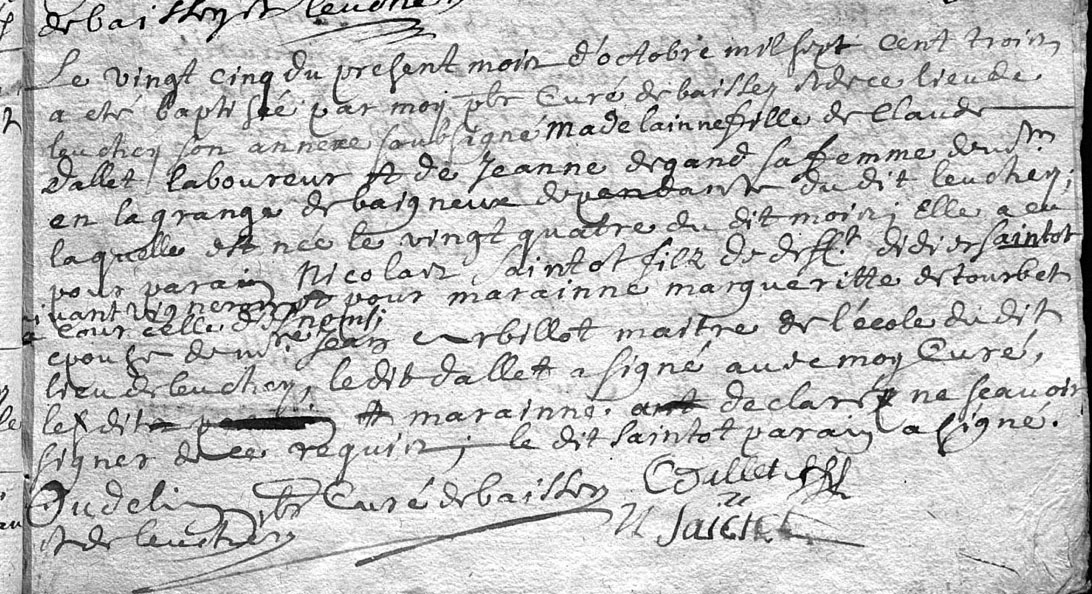 de baissey et leuchey
Le vingt cinq du present mois d'octobre mil sept cent trois
a eté baptisée par moy pbr Curé de baissey et de ce lieu de
leuchey son annexe soubsigné madelainne fille de Claude
dallet laboureur et de Jeanne degand sa femme demts
en la grange de baigneux dependante du dit leuchey;
laquelle est née le vingt quatre du dit mois; Elle a eu
pour parain Nicolas saintot filz de defft didier saintot
vivant vigneron et pour marainne margueritte detourbet
a Courcelle
epouse de mre Jean curbillot maitre de l'école du dit
lieu de leuchey, le dit dallet a signé avec moy Curé,
les dits et marainne. ont declaré ne scavoir
signer de ce requis; le dit saintot parain a signé.
Oudelin pbr Curé de baissey C Dallet
et de leuchey N saitot